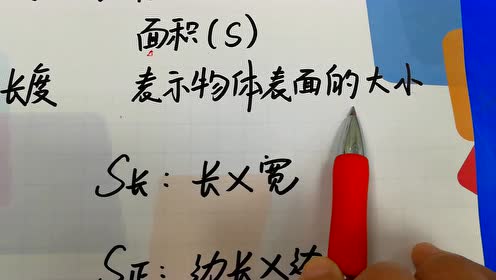 面积(S)
长度 表示物体表面的大小
S长：长×宽
S正：边长×边